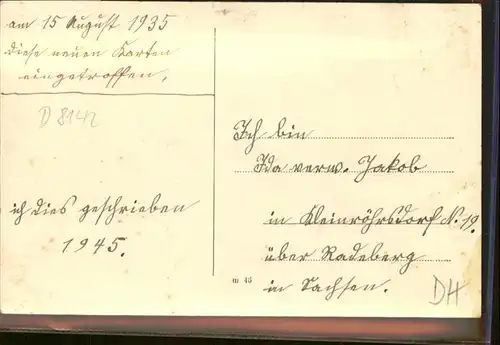 am 15 August 1935
diese neuen Karten
eingetroffen.
D 8142
ich dies geschrieben
1945.
Ich bin
Ida verw. Jakob
in Kleinröhrsdorf N. 19.
über Radeberg
in Sachsen.
m 46
DH